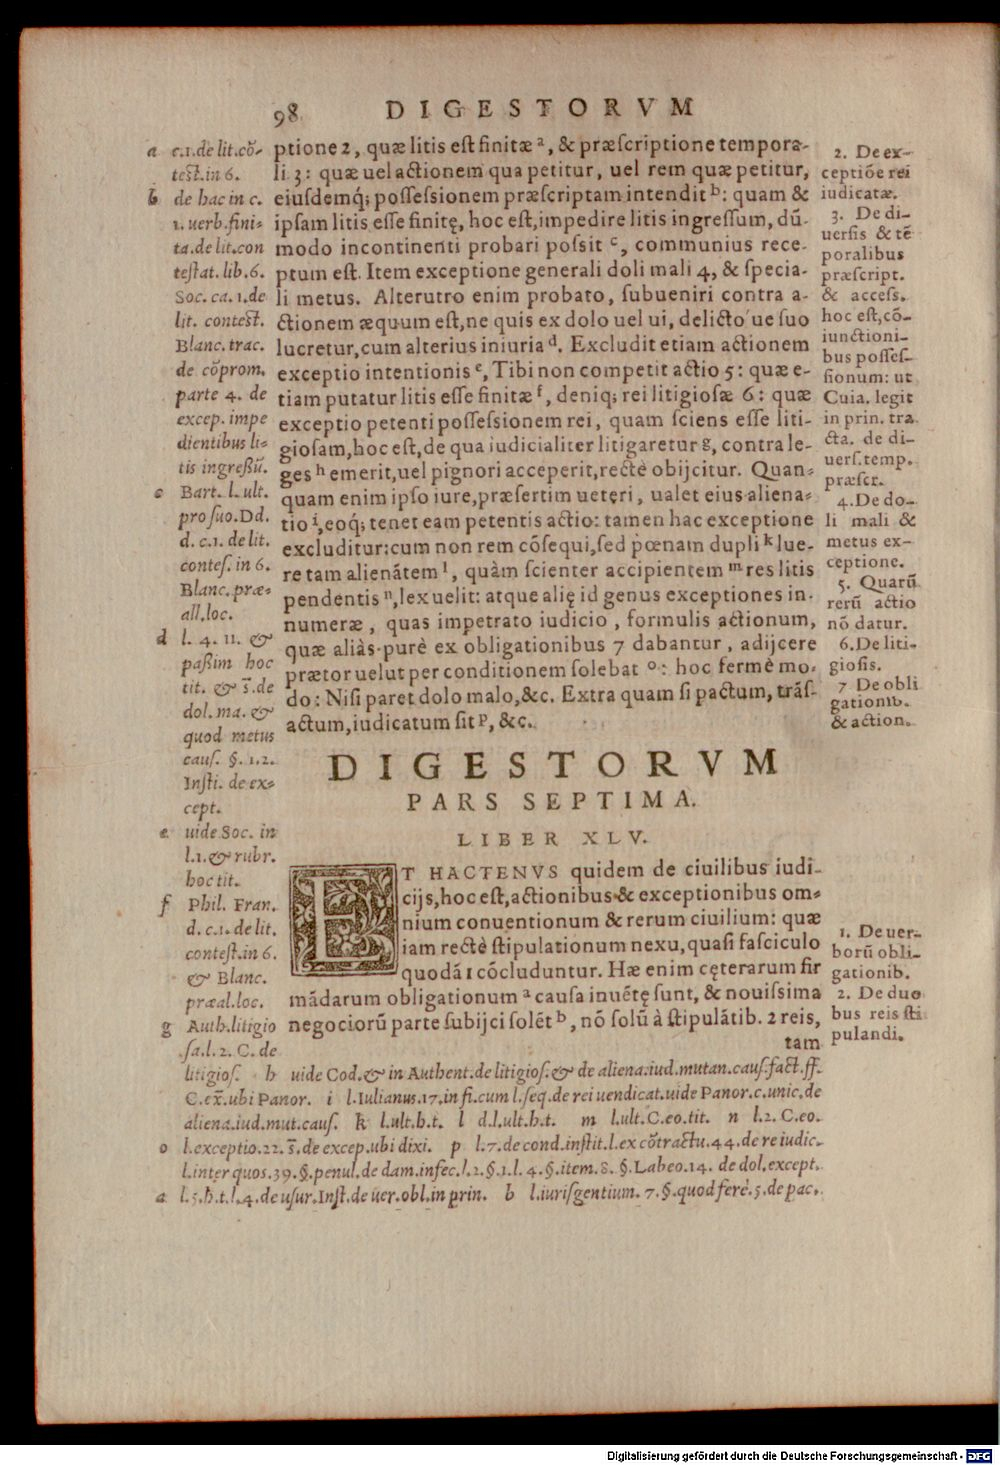 98 DIGESTORVM
ptione 2, quæ litis eſt finitæ ᵃ, & præſcriptione tempora-
li 3: quæ uel actionem qua petitur, uel rem quæ petitur,
eiuſdemq́; poſſeſsionem præſcriptam intendit ᵇ: quam &
ipſam litis eſſe finitę, hoc eſt, impedire litis ingreſſum, dū-
modo incontinenti probari poſsit ᶜ, communius rece-
ptum eſt. Item exceptione generali doli mali 4, & ſpecia-
li metus. Alterutro enim probato, ſubueniri contra a-
ctionem æquum eſt, ne quis ex dolo uel ui, delicto ue ſuo
lucretur, cum alterius iniuria ᵈ. Excludit etiam actionem
exceptio intentionis ᵉ, Tibi non competit actio 5: quæ e-
tiam putatur litis eſſe finitæ ᶠ, deniq; rei litigioſæ 6: quæ
exceptio petenti poſſeſsionem rei, quam ſciens eſſe liti-
gioſam, hoc eſt, de qua iudicialiter litigaretur ᵍ, contra le-
ges ʰ emerit, uel pignori acceperit, rectè obijcitur. Quan-
quam enim ipſo iure, præſertim ueteri, ualet eius aliena-
tio ⁱ, eoq́; tenet eam petentis actio: tamen hac exceptione
excluditur: cum non rem cõſequi, ſed pœnam dupli ᵏ lue-
re tam alienãtem ˡ, quàm ſcienter accipientem ᵐ res litis
pendentis ⁿ, lex uelit: atque alię id genus exceptiones in-
numeræ, quas impetrato iudicio, formulis actionum,
quæ aliàs purè ex obligationibus 7 dabantur, adijcere
prætor uelut per conditionem ſolebat ᵒ: hoc fermè mo-
do: Niſi paret dolo malo, &c. Extra quam ſi pactum, trãſ-
actum, iudicatum ſit ᵖ, &c.
a c.1. de lit. cõ-
teſt. in 6.
b de hac in c.
1. uerb. fini-
ta. de lit. con
teſtat. lib. 6.
Soc. ca. 1. de
lit. conteſt.
Blanc. trac.
de cõprom.
parte 4. de
excep. impe
dientibus li-
tis ingreßũ.
c Bart. l. ult.
pro ſuo. Dd.
d. c. 1. de lit.
conteſ. in 6.
Blanc. præ-
all. loc.
d l. 4. 11. &
paßim hoc
tit. & s̄. de
dol. ma. &
quod metus
cauſ. §. 1. 2.
Inſti. de ex-
cept.
e uide Soc. in
l. 1. & rubr.
hoc tit.
f Phil. Fran.
d. c. 1. de lit.
conteſt. in 6.
& Blanc.
præal. loc.
g Auth. litigio
ſa. l. 2. C. de
2. De ex-
ceptiõe rei
iudicatæ.
3. De di-
uerſis & tẽ
poralibus
præſcript.
& acceſs.
hoc eſt, cõ-
iunctioni-
bus poſſeſ-
ſionum: ut
Cuia. legit
in prin. tra
cta. de di-
uerſ. temp.
præſcr.
4. De do-
li mali &
metus ex-
ceptione.
5. Quarũ
rerũ actio
nõ datur.
6. De liti-
gioſis.
7 De obli
gationib.
& action.
DIGESTORVM
PARS SEPTIMA.
LIBER XLV.
ET HACTENVS quidem de ciuilibus iudi-
cijs, hoc eſt, actionibus & exceptionibus om-
nium conuentionum & rerum ciuilium: quæ
iam rectè ſtipulationum nexu, quaſi faſciculo
quodã 1 cõcluduntur. Hæ enim cęterarum fir
mãdarum obligationum ᵃ cauſa inuẽtę ſunt, & nouiſsima
negociorũ parte ſubijci ſolẽt ᵇ, nõ ſolũ à ſtipulãtib. 2 reis,
tam
1. De uer-
borũ obli-
gationib.
2. De duo
bus reis ſti
pulandi.
litigioſ. h uide Cod. & in Authent. de litigioſ. & de aliena. iud. mutan. cauſ. fact. ff.
C. ex̄. ubi Panor. i l. Iulianus. 17. in fi. cum l. ſeq. de rei uendicat. uide Panor. c. unic. de
aliena. iud. mut. cauſ. k l. ult. h. t. l d. l. ult. h. t. m l. ult. C. eo. tit. n l. 2. C. eo.
o l. exceptio. 22. s̄. de excep. ubi dixi. p l. 7. de cond. inſtit. l. ex cõtractu. 44. de re iudic.
l. inter quos. 39. §. penul. de dam. infec. l. 2. §. 1. l. 4. §. item. 8. §. Labeo. 14. de dol. except.
a l. 5. h. t. l. 4. de uſur. Inſt. de uer. obl. in prin. b l. iuriſgentium. 7. §. quod ferè. 5. de pac.
Digitalisierung gefördert durch die Deutsche Forschungsgemeinschaft - DFG